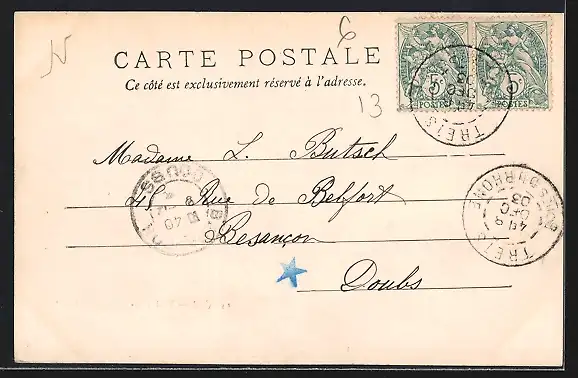 6
CARTE POSTALE
Ce côté est exclusivement réservé à l'adresse.
13
5c POSTES
5c POSTES
TREIS
DEC
03
Madame L. Butsch
45 Rue de Belfort
Besançon
Doubs
TREIS
DEC
03
DU RHONE
DOUBS